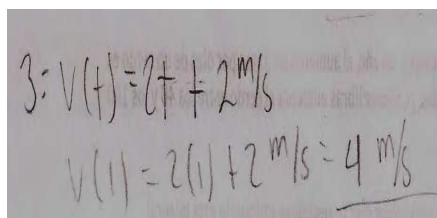 3: V(t) = 2t + 2 m/s
V(1) = 2(1) + 2 m/s = 4 m/s